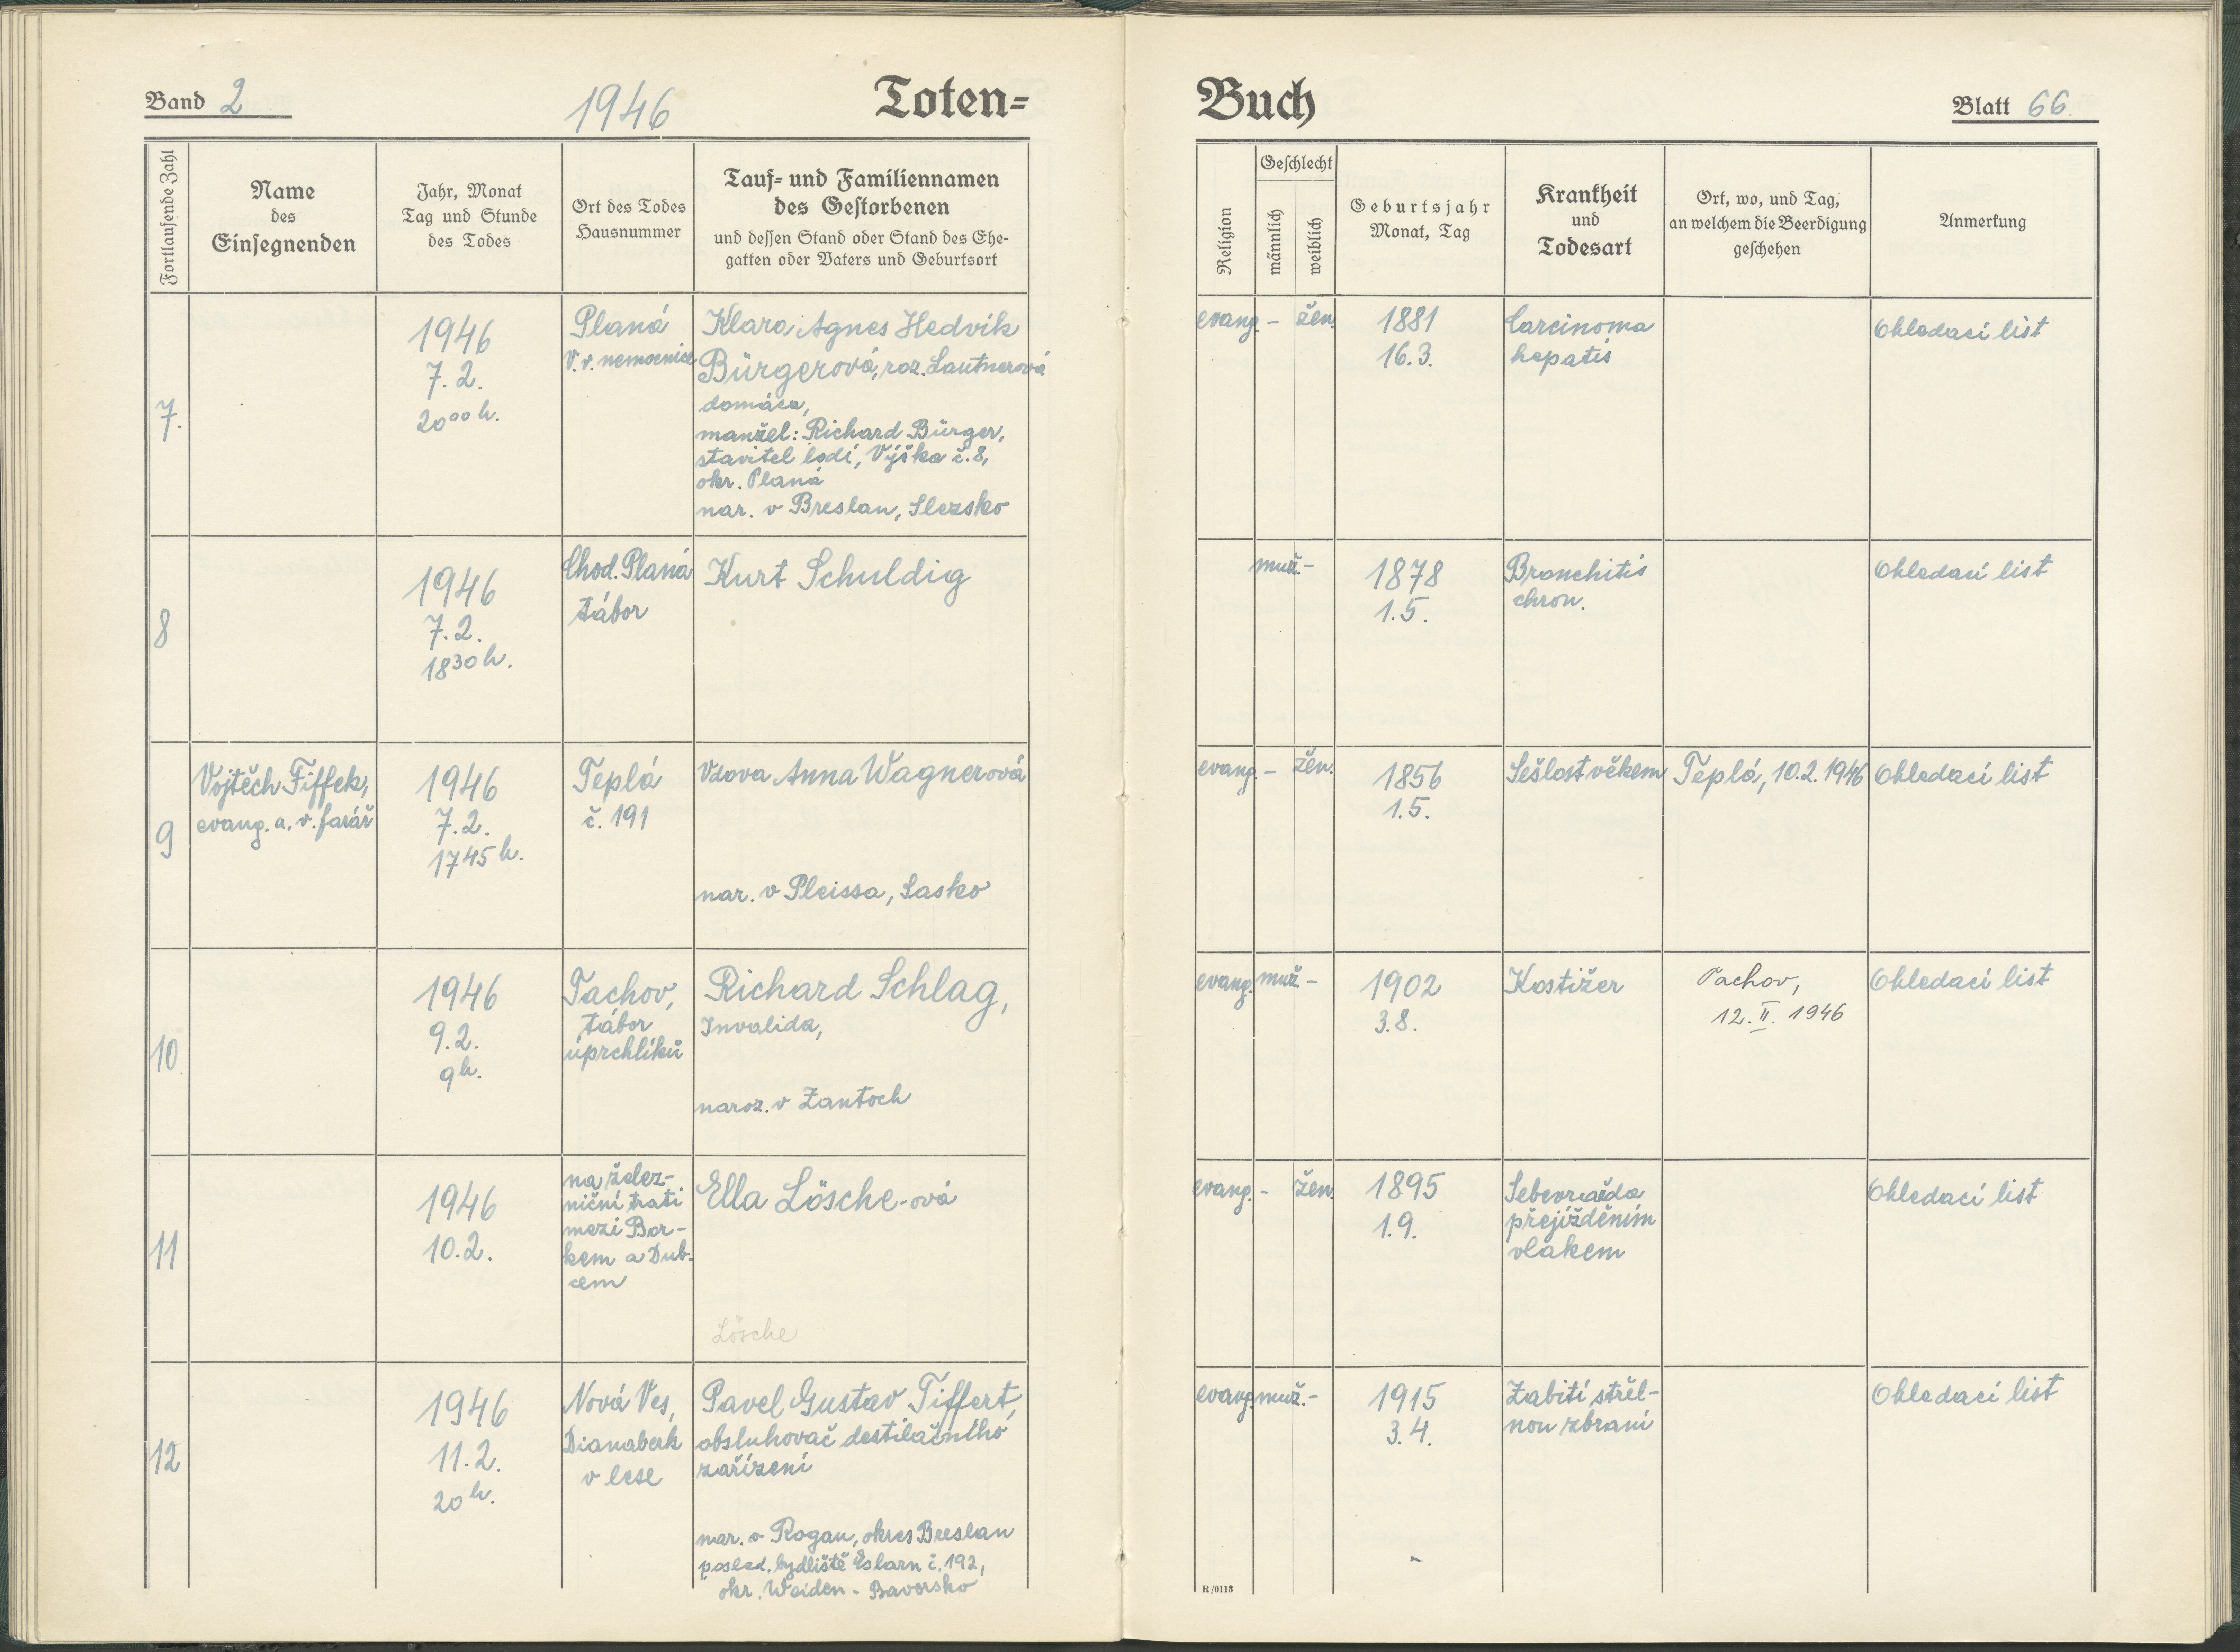 Band 2
1946
Toten=
Buch
Blatt 66.
Fortlaufende Zahl
Name
des
Einsegnenden
Jahr, Monat
Tag und Stunde
des Todes
Ort des Todes
Hausnummer
Tauf= und Familiennamen
des Gestorbenen
und dessen Stand oder Stand des Ehe-
gatten oder Vaters und Geburtsort
Religion
Geschlecht
männlich
weiblich
Geburtsjahr
Monat, Tag
Krankheit
und
Todesart
Ort, wo, und Tag,
an welchem die Beerdigung
geschehen
Anmerkung
7.
1946
7. 2.
20 00 h.
Planá
V. v. nemocnice
Klara Agnes Hedvik
Bürgerová, roz. Lautnerová
domáca,
manžel: Richard Bürger,
stavitel lodí, Výška č. 8,
okr. Planá
nar. v Breslau, Slezsko
evang. – žen.
1881
16. 3.
Carcinoma
hepatis
Ohledací list
8
1946
7. 2.
18 30 h.
Chod. Planá
tábor
Kurt Schuldig
muž. –
1878
1. 5.
Bronchitis
chron.
Ohledací list
9
Vojtěch Fiffek,
evang. a. v. farář
1946
7. 2.
17 45 h.
Teplá
č. 191
Vdova Anna Wagnerová
nar. v Pleissa, Sasko
evang. – žen.
1856
1. 5.
Sešlost věkem
Teplá, 10. 2. 1946
Ohledací list
10
1946
9. 2.
9 h.
Tachov,
tábor
úprchlíků
Richard Schlag,
Invalida,
naroz. v Zantoch
evang. muž. –
1902
3. 8.
Kostižer
Tachov,
12. II. 1946
Ohledací list
11
1946
10. 2.
na želez-
niční trati
mezi Bor-
kem a Dub-
cem
Ella Lösche-ová
Lösche
evang. – žen.
1895
1. 9.
Sebevražda
přejížděním
vlakem
Ohledací list
12
1946
11. 2.
20 h.
Nová Ves,
Dianaberk
v lese
Pavel Gustav Tiffert,
obsluhovač destilačního
zařízení
nar. v Rogau, okres Breslau
posled. bydliště Eslarn č. 192,
okr. Weiden - Bavorsko
evang. muž. –
1915
3. 4.
Zabití střel-
nou zbraní
Ohledací list
R/0113